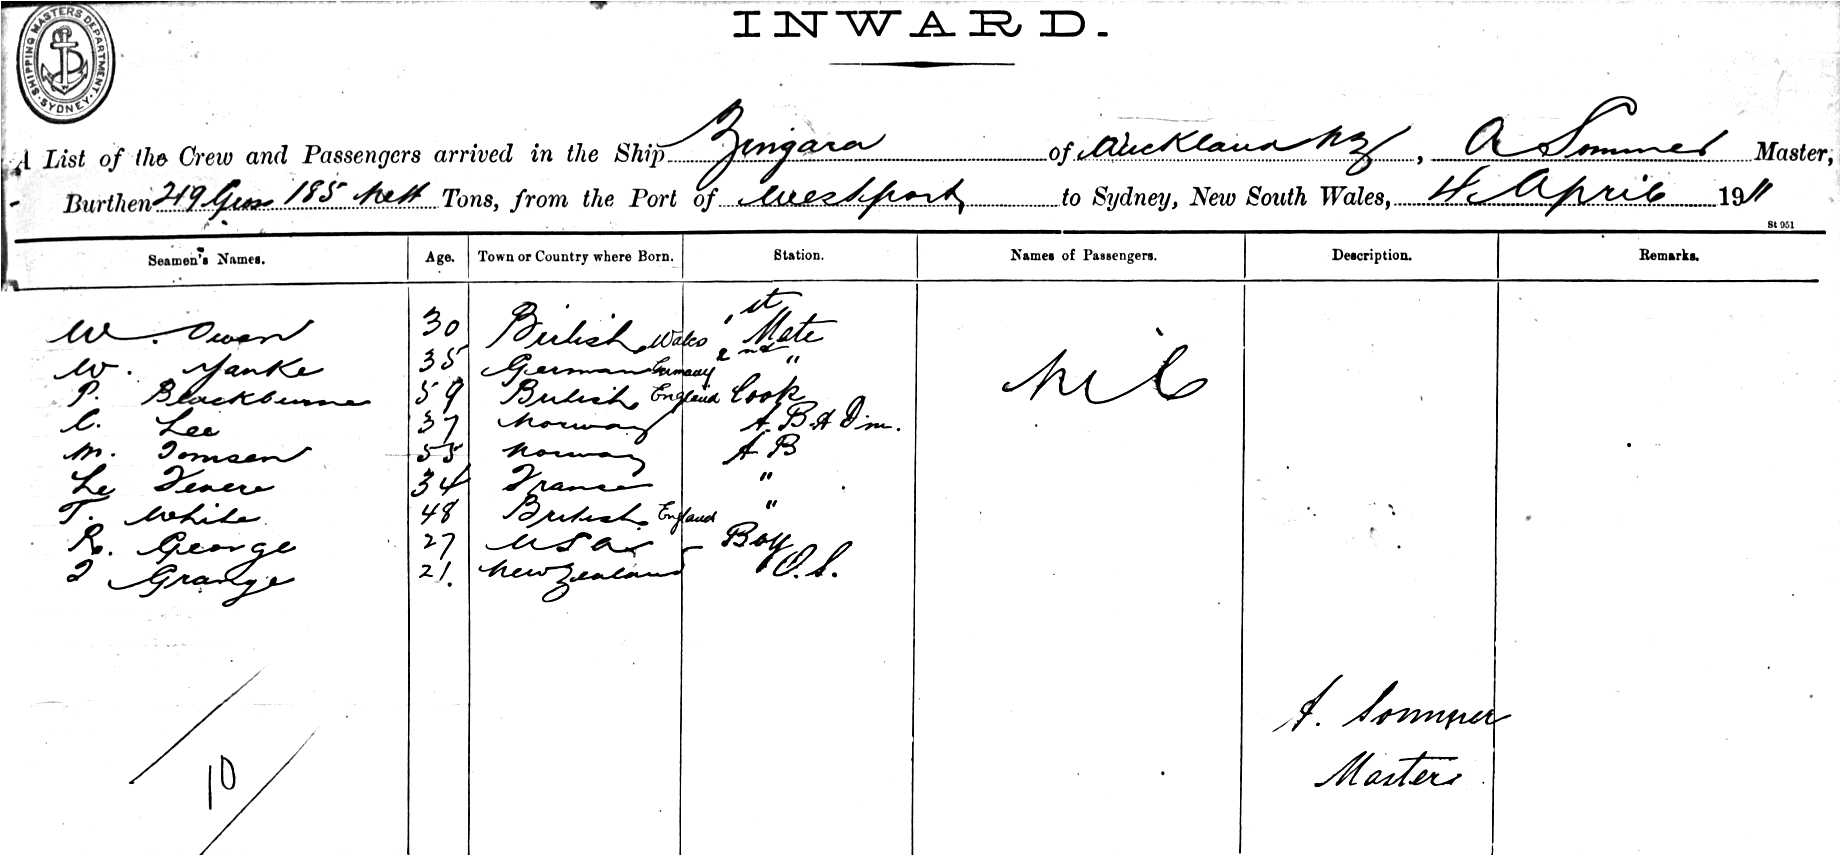 SHIPPING MASTERS DEPARTMENT. SYDNEY.
INWARD.
A List of the Crew and Passengers arrived in the Ship Zingara of Auckland NZ, A Sommer Master,
Burthen 219 Gross 185 Nett Tons, from the Port of Westport, to Sydney, New South Wales, 4 April 1911
St 951
Seamen's Names. Age. Town or Country where Born. Station. Names of Passengers. Description. Remarks.
W. Owen 30 British Wales 1st Mate
W. Yanke 35 German Germany 2nd " Nil
P. Blackburne 59 British England Cook
C. Lee 37 Norway A.B. & Dm.
M. Tomsen 55 Norway A B
Le Fevere 34 France "
T. White 48 British England "
R. George 27 USA Boy
J Grange 21. New Zealand O.S.
A. Sommer
10
Master